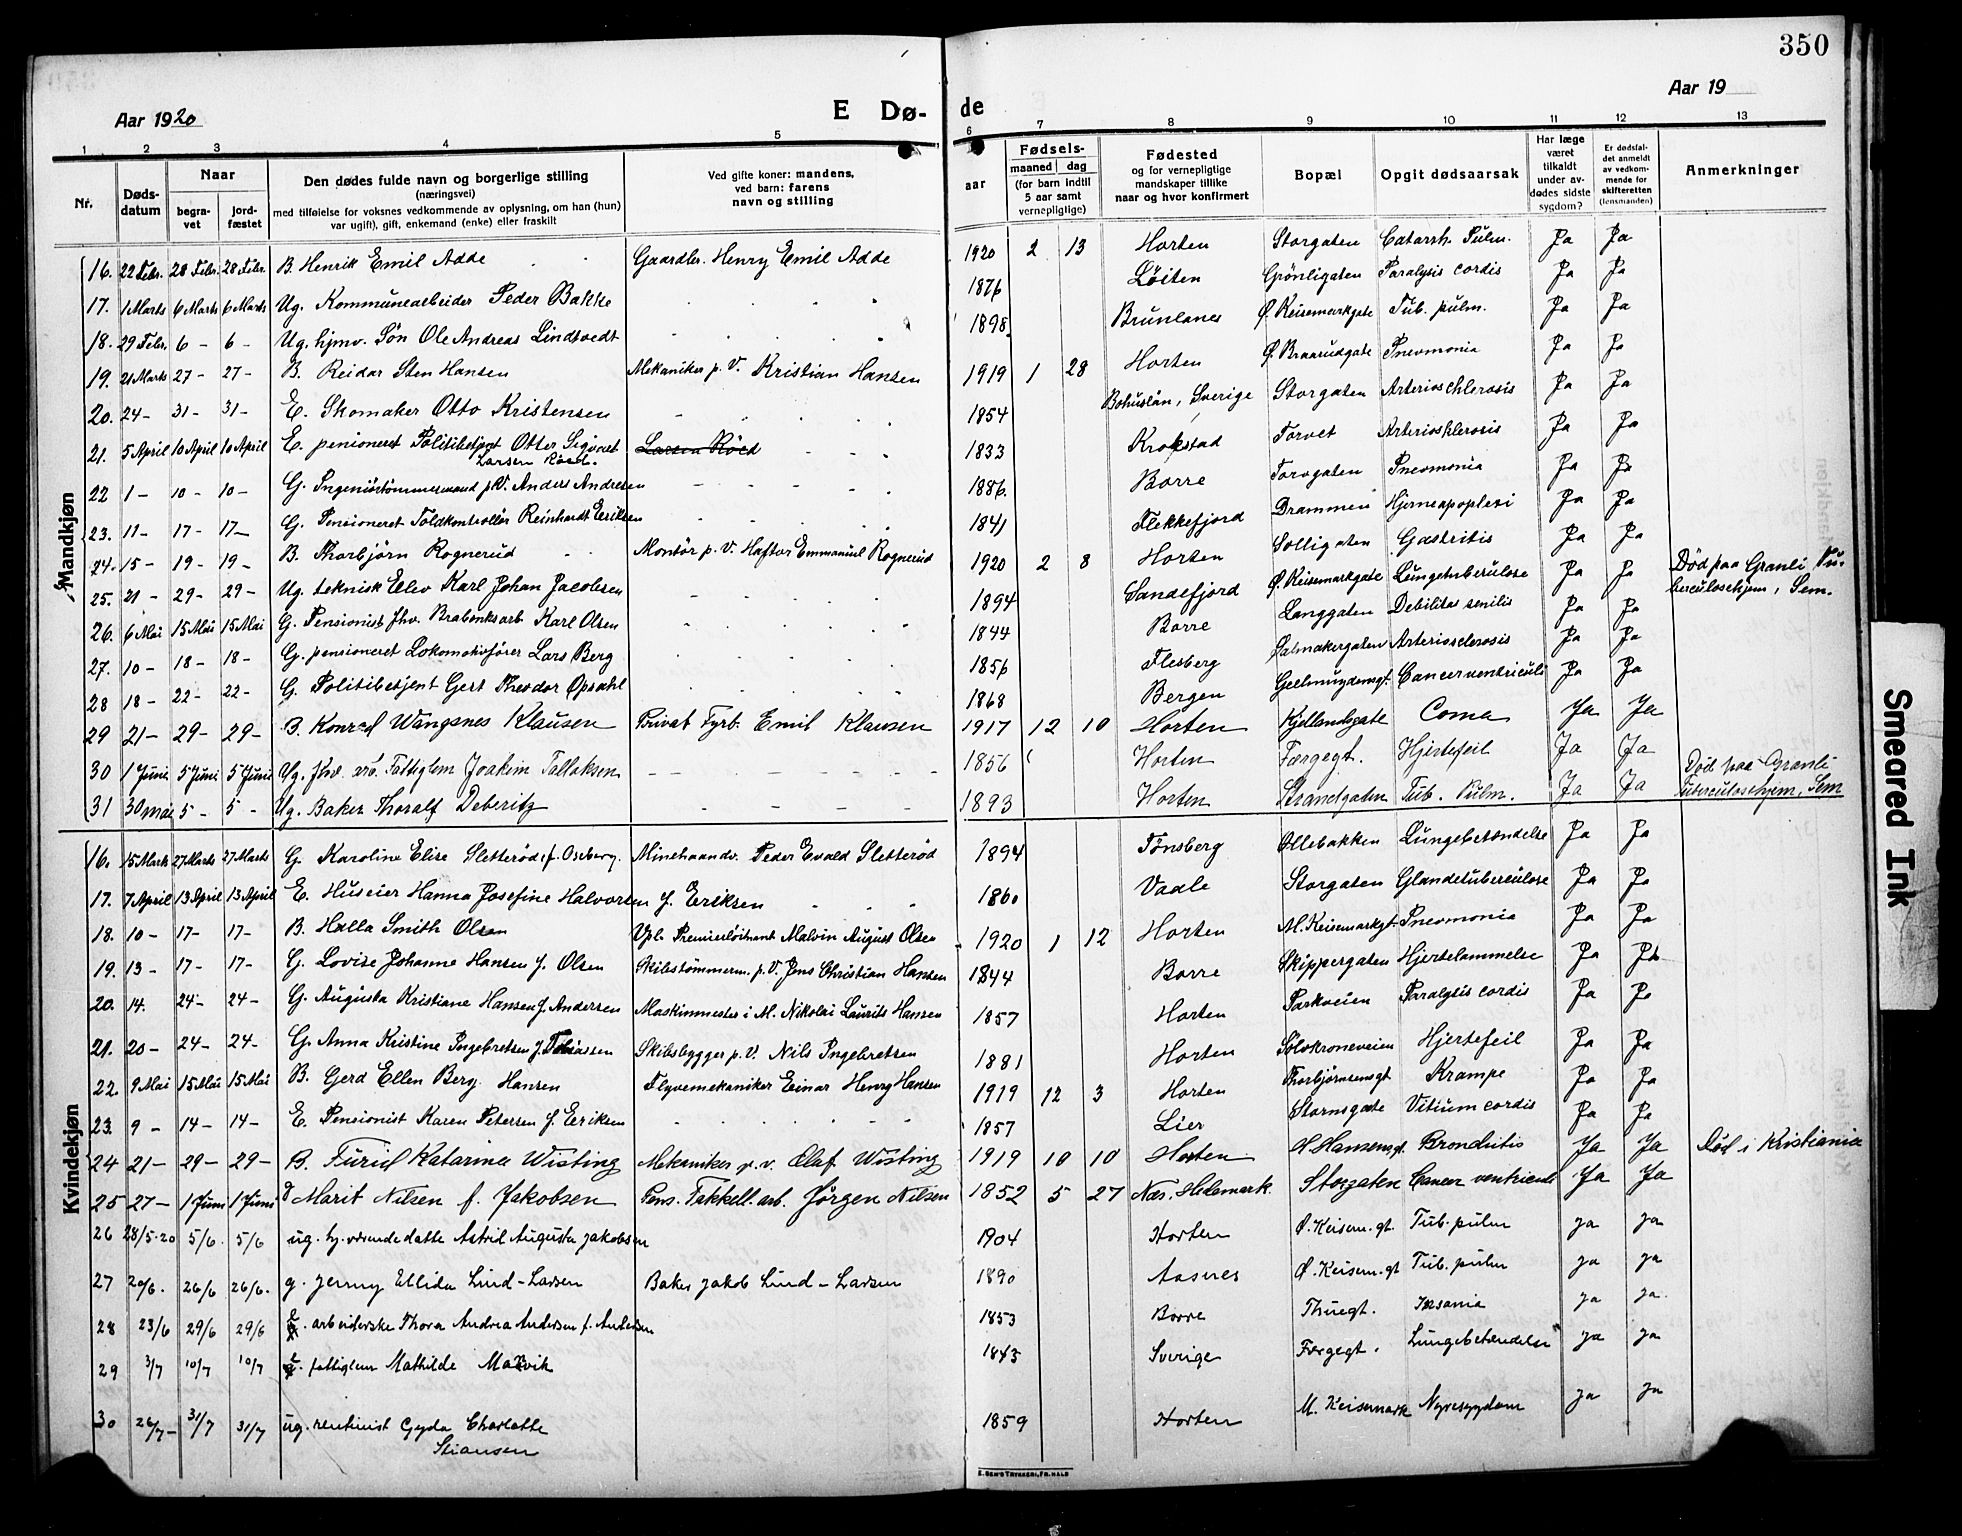 350
Aar 1920
E Dø-
de
Aar 19
1 2 3 4 5 6 7 8 9 10 11 12 13
Nr.
Døds-
datum
Naar
begra-
vet
jord-
fæstet
Den dødes fulde navn og borgerlige stilling
(næringsvei)
med tilføielse for voksnes vedkommende av oplysning, om han (hun)
var ugift), gift, enkemand (enke) eller fraskilt
Ved gifte koner: mandens,
ved barn: farens
navn og stilling
aar
Fødsels-
maaned dag
(for barn indtil
5 aar samt
vernepligtige)
Fødested
og for vernepligtige
mandskaper tillike
naar og hvor konfirmert
Bopæl
Opgit dødsaarsak
Har læge
været
tilkaldt
under av-
dødes sidste
sygdom?
Er dødsfal-
det anmeldt
av vedkom-
mende for
skifteretten
(lensmanden)
Anmerkninger
Mandkjøn
16. 22 Febr. 28 Febr. 28 Febr. B. Henrik Emil Adde Gaardbr. Henry Emil Adde 1920 2 13 Horten Storgaten Catarrh. Pulm. Ja Ja
17. 1 Marts 6 Marts 6 Marts Ug. Kommunearbeider Peder Bakke 1876 Løiten Grønligaten Paralysis cordis Ja Ja
18. 29 Febr. 6 - 6 - Ug. hjmv. Søn Ole Andreas Lindtvedt 1898 Brunlanes Ø. Keisemarkgate Tub. pulm. Ja Ja
19. 21 Marts 27 - 27 - B. Reidar Sten Hansen Mekaniker p. V. Kristian Hansen 1919 1 28 Horten Ø. Braarudgate Pneumonia Ja Ja
20. 24 - 31 - 31 - E. Skomaker Otto Kristensen 1854 Bohuslän, Sverige Storgaten Arterioschlerosis Ja Ja
21. 5 April 10 April 10 April E. penioneret Politibetjent Otter Sigvart Larsen Röed. Larsen Röed 1833 Krokstad Torvet Arterioschlerosis Ja Ja
22 1 - 10 - 10 - G. Ingeniörtömmermand p. V. Anders Andresen 1886. Borre Torvgaten Pneumonia Ja Ja
23. 11 - 17 - 17 - G. Pensioneret Toldkontrollör Reinhardt Eriksen 1841 Flekkefjord Drammen Hjerneapoplexi Ja Ja
24. 15 - 19 - 19 - B. Thorbjörn Rognerud Montör p. V. Haftor Emmanuel Rognerud 1920 2 8 Horten Solligaten Gastritis Ja Ja
25. 21 - 29 - 29 - Ug. teknisk Elev Karl Johan Jacobsen 1894 Sandefjord Ø. Keisemarkgate Lungetuberculose Ja Ja Död paa Granli Tu-
berculosehjem, Sem.
26. 6 Mai 15 Mai 15 Mai G. Pensionist fhv. Karl Olsen 1844 Borre Langgaten Debilitas senilis Ja Ja
27. 10 - 18 - 18 - G. pensioneret Lokomotivfører Lars Berg 1856 Flesberg Arteriosclerosis Ja Ja
28 18 - 22 - 22 - G. Politibetjent Gert Theodor Opsahl 1868 Bergen Cancer ventriculi Ja Ja
29 21 - 29 - 29 - B. Konrad Wangsnes Klausen Privat Fyrb. Emil Klausen 1917 12 10 Horten Kjellandsgate Coma Ja Ja
30 1 Juni 5 Juni 5 Juni Ug. fhv. arb. Fattiglem Joakim Tollaksen 1856 Horten Færgegt. Hjertefeil Ja Ja
31 30 mai 5 - 5 - Ug. Baker Thoralf Deberitz 1893 Horten Strandgaten Tub. Pulm. Ja Ja Död paa Granli
Tuberculosehjem, Sem
Kvindekjøn
16. 15 Marts 27 Marts 27 Marts G. Karoline Elise Sletteröd f. Oseberg. Minehaandv. Peder Evald Sletteröd 1894 Tønsberg Ollebakken Lungebetændelse Ja Ja
17. 7 April 13 April 13 April E. Huseier Hanna Josefine Halvorsen f. Eriksen 1860 Vaale Storgaten Glandetuberculose Ja Ja
18. 10 - 17 - 17 - B. Halla Smith Olsen Vpl. Premierløitnant Malvin August Olsen 1920 1 12 Horten M. Keisemarkgt. Pneumonia Ja Ja
19. 13 - 17 - 17 - G. Lovise Johanne Hansen f. Olsen Skibstömmerm. p. V. Jens Christian Hansen 1844 Borre Skippergaten Hjertelammelse Ja Ja
20. 14. 24 - 24 - G. Augusta Kristiane Hansen f. Andersen Maskinmester i M. Nikolai Laurits Hansen 1857 Horten Parkveien Paralysis cordis Ja Ja
21. 20 - 24 - 24 - G. Anna Kristine Ingebretsen f. Tobiassen Skibsbygger p. V. Nils Ingebretsen 1881 Horten Sølvkroneveien Hjertefeil Ja Ja
22. 9 Mai 15 Mai 15 Mai B. Gerd Ellen Berg Hansen Flyvemekaniker Einar Henry Hansen 1919 12 3 Horten Thorbjörnsensgt Krampe Ja Ja
23. 9 - 14 - 14 - E. Pensionist Karen Petersen f. Eriksen 1857 Lier Stormsgate Vitium cordis Ja Ja
24 21 - 29 - 29 - B. Turid Katarina Wisting Mekaniker p. v. Olaf Wisting 1919 10 10 Horten H. Hansensgt. Bronchitis Ja Ja Död i Kristiania
25 27 - 1 Juni 1 Juni G Marit Nilsen f. Jakobsen Pens. Takkell. arb. Jørgen Nilsen 1852 5 27 Næs, Hedemark Storgaten Cancer ventriculi Ja Ja
26 28/5-20 5/6 5/6 ug. hj. værende datte Astrid Augusta Jakobsen 1904 Horten Ø. Keisem. gt. Tub. pulm Ja Ja
27 20/6. 26/6 26/6. g. Jenny Ellida Lind-Larsen Baker Jakob Lind-Larsen 1890 Aasnes Ø. Keisem. gt Tub. pulm Ja Ja
28 23/6 29/6 29/6 E. arbeiderske Thora Andrea Andersen f. Andersen 1853 Borre Thuegt. Insania Ja Ja
29 3/7 10/7 10/7 E. fattiglem Mathilde Marvik 1843 Sverige Færgegt. Lungebetændelse Ja Ja
30 26/7 - 31/7 31/7 ug. rentenist Gyda Charlotte
Stiansen 1859 Horten M. Keisemark Nyresygdom Ja Ja
E. SEM'S TRYKKERI, FR.HALD
Smeared Ink